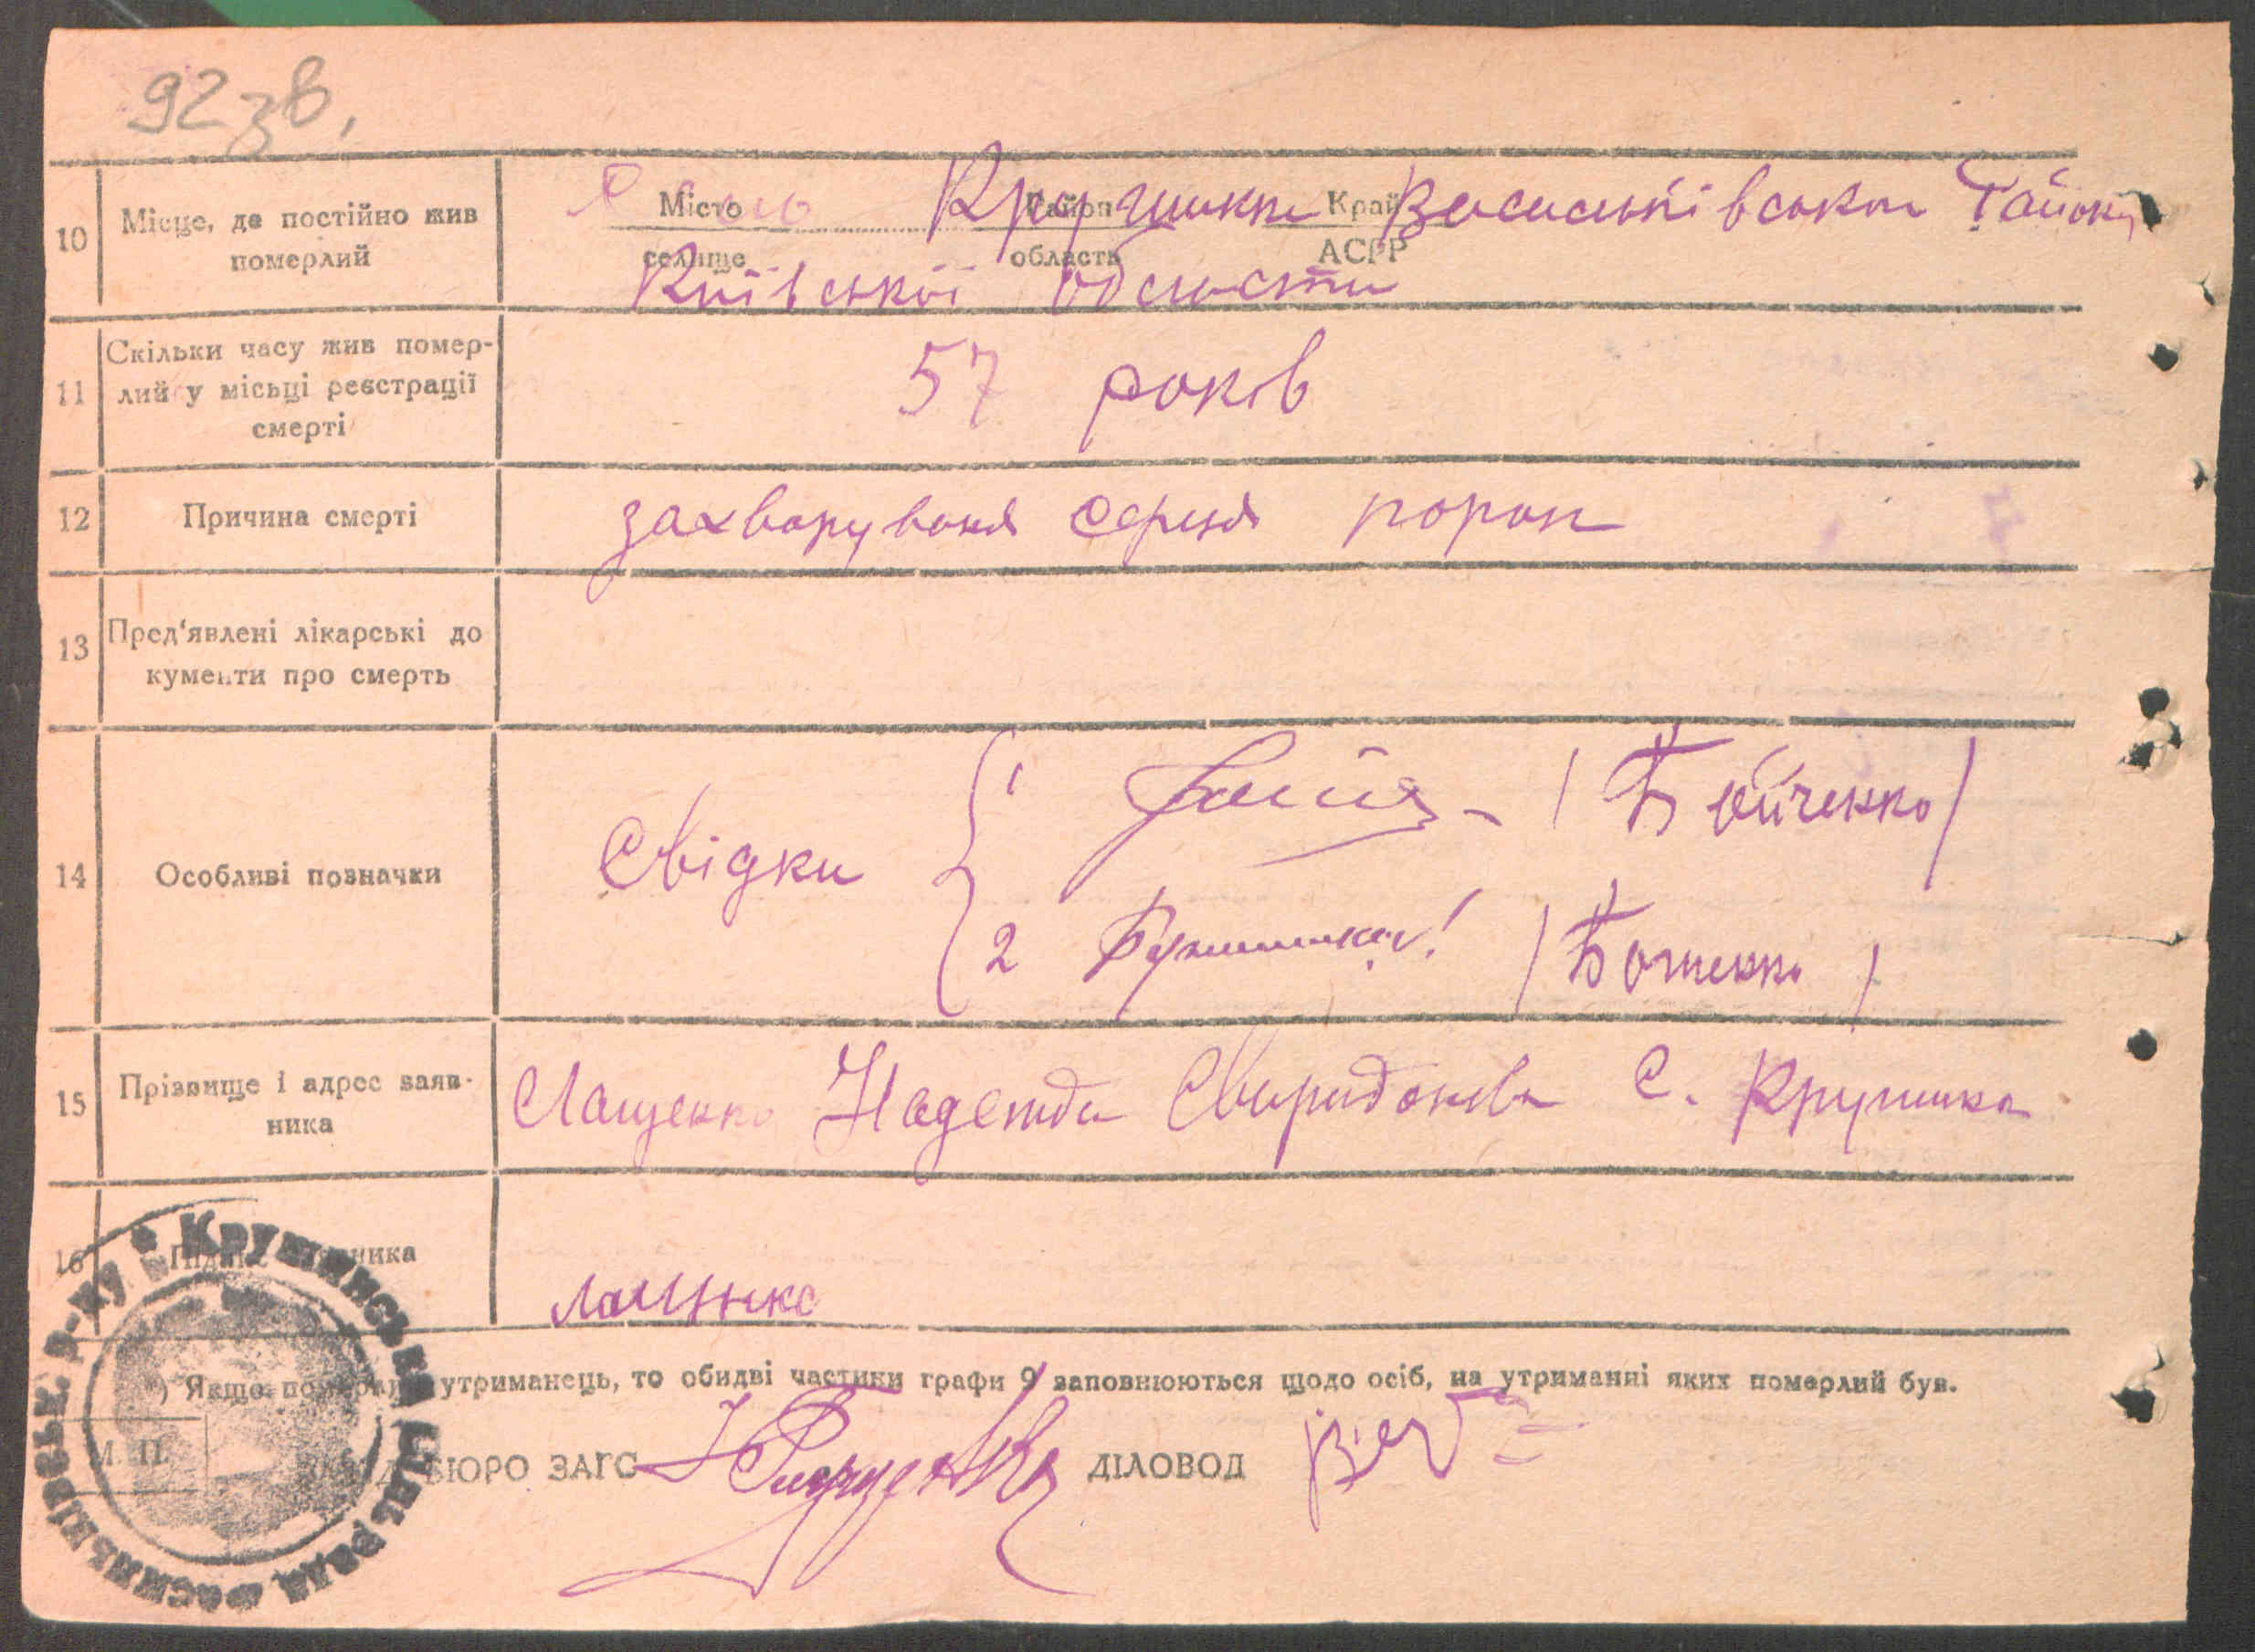 92 зв.
10 Місце, де постійно жив померлий
Місто Район Край
Село Крушинка Васильківського Району
селище область АСРР
Київської області
11 Скільки часу жив помер-
лий у місьці реєстрації
смерті
57 років
12 Причина смерті
захворування серця порок
13 Пред'явлені лікарські до
кументи про смерть
14 Особливі позначки
Свідки
1 /Бойченко/
2 /Боженко/
15 Прізвище і адрес заяв-
ника
Лащенко Надежда Свиридонівна С. Крушинка
16 Підпис заявника
Лащенко
) Якщо померлий утриманець, то обидві частики графи 9 заповнюються щодо осіб, на утриманні яких померлий був.
М. П.
ЗАВІД. БЮРО ЗАГС ДІЛОВОД
Крушинська сільрада Васильківськ. р-ну